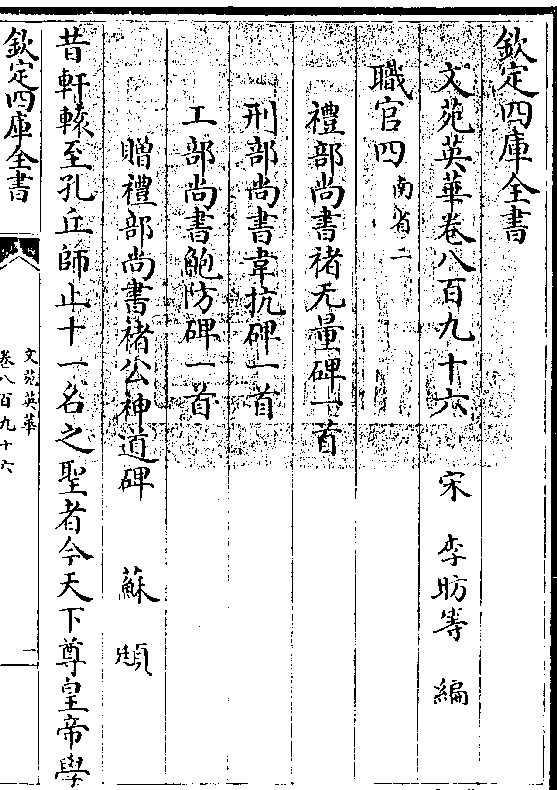 欽定四庫全書
文苑英華卷八百九十六 宋 李昉等 編
職官四 南省二
禮部尚書褚无量碑一首
刑部尚書韋抗碑一首
工部尚書鮑防碑一首
贈禮部尚書褚公神道碑 蘇頲
昔軒轅至孔丘師止十一名之聖者今天下尊皇帝學
欽定四庫全書
文苑英華
卷八百九十六
一